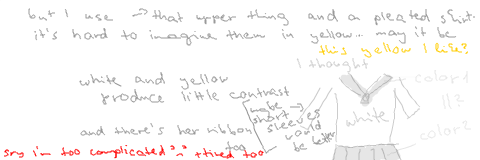 but I use → that upper thing and a pleated skirt.
it's hard to imagine them in yellow... may it be
this yellow I like?
I thought
white and yellow
produce little contrast
and there's her ribbon
too
maybe →
short
sleeves
would
be better
white
color 1
||?
color 2
sry i'm too complicated ^^" +tired too